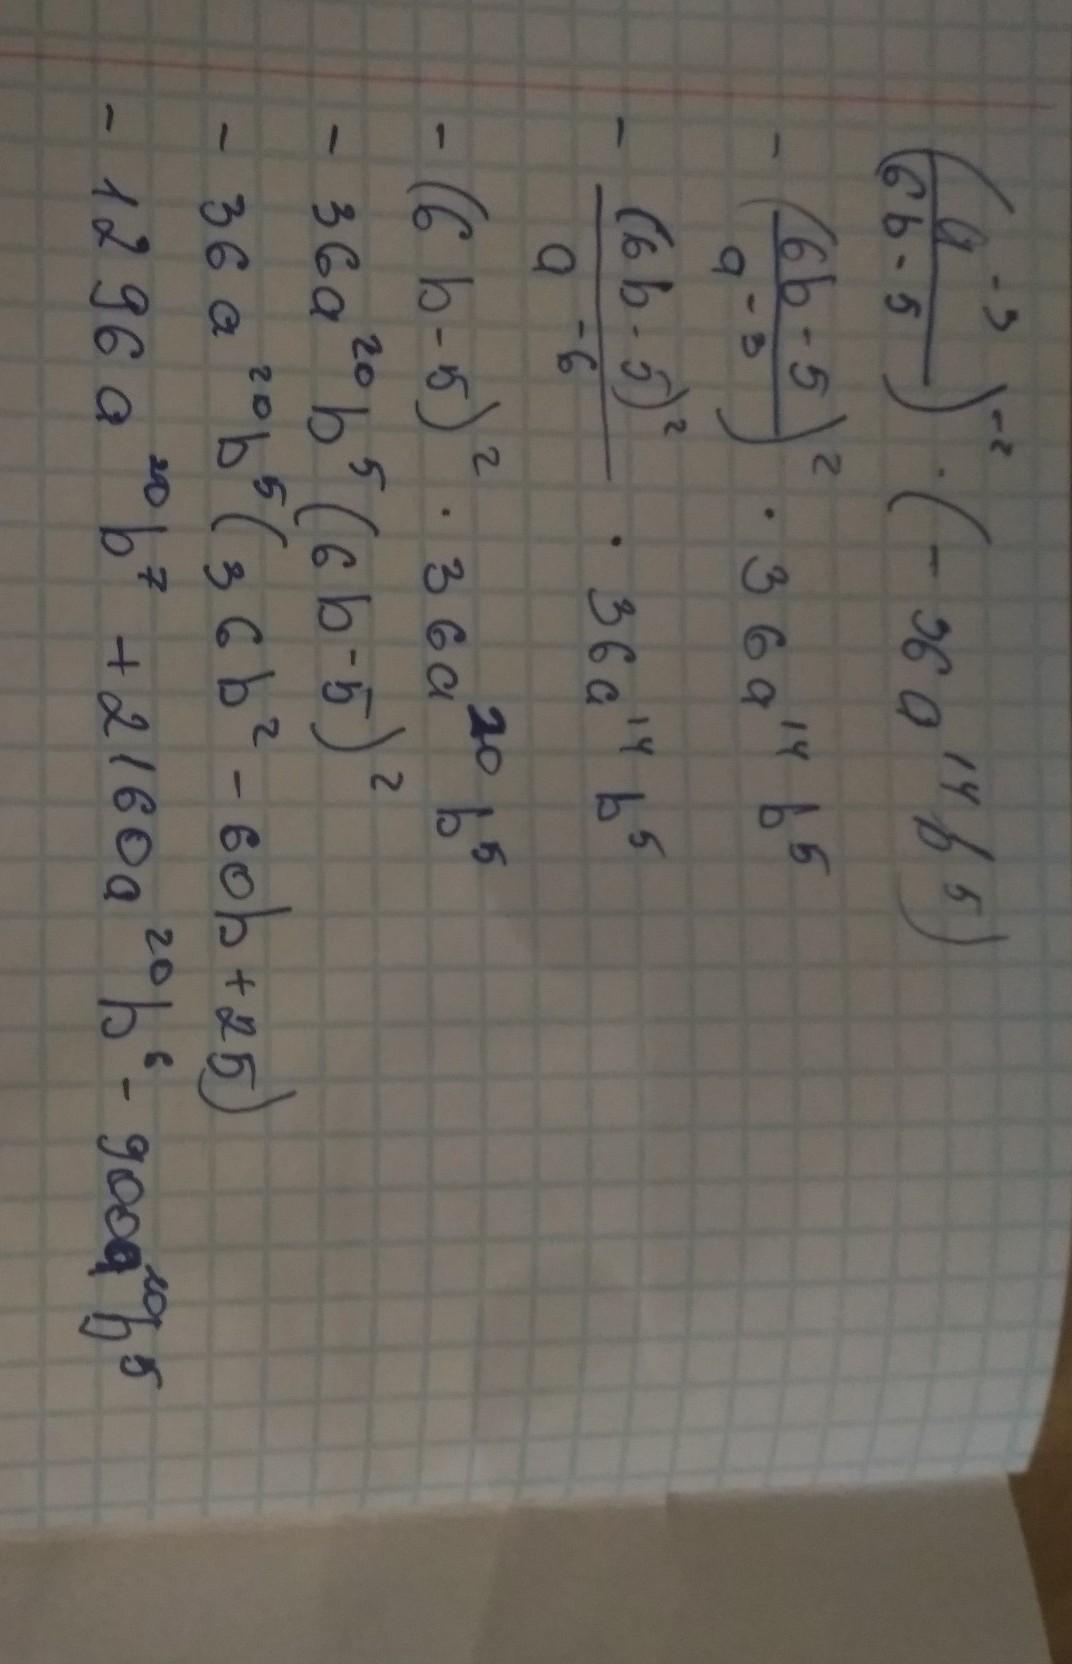 (a⁻³/(6b-5))⁻² · (-36a¹⁴b⁵)
-((6b-5)/a⁻³)² · 36a¹⁴b⁵
-(6b-5)²/a⁻⁶ · 36a¹⁴b⁵
-(6b-5)² · 36a²⁰b⁵
-36a²⁰b⁵(6b-5)²
-36a²⁰b⁵(36b²-60b+25)
-1296a²⁰b⁷+2160a²⁰b⁶-900a²⁰b⁵